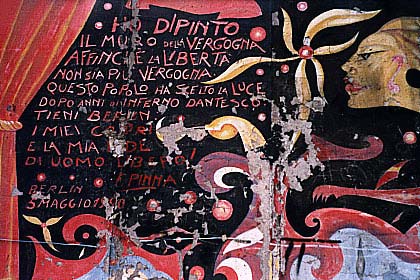 HO DIPINTO
IL MURO DELLA VERGOGNA
AFFINCHE LA LIBERTÀ
NON SIA PIÙ VERGOGNA.
QUESTO POPOLO HA SCELTO LA LUCE
DOPO ANNI DI INFERNO DANTESCO
TIENI BERLIN
I MIEI
E LA MIA
DI UOMO
F. PINNA
BERLIN
5 MAGGIO